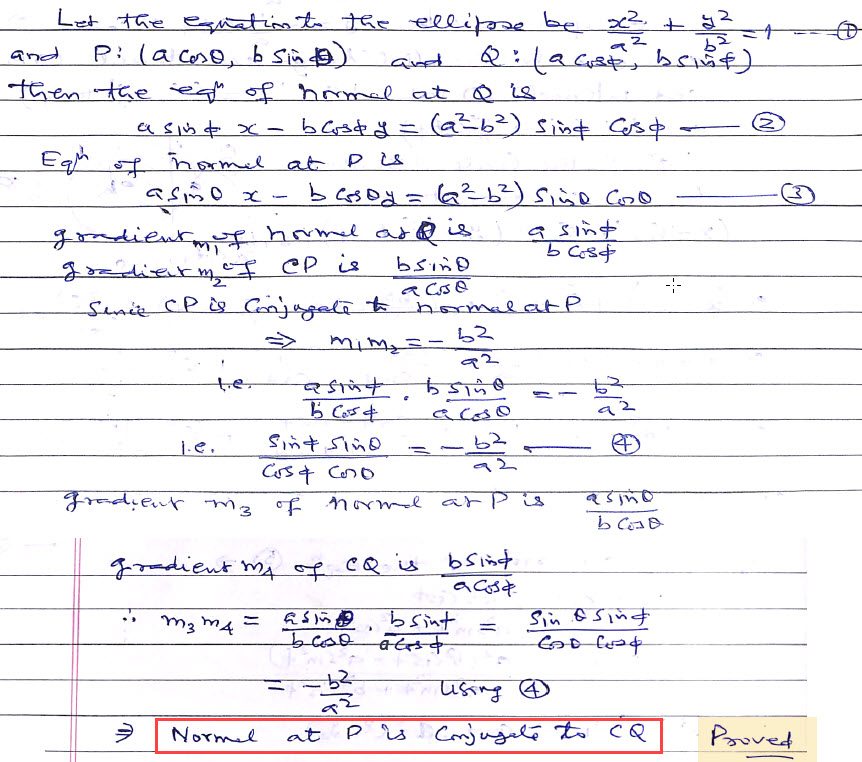 Let the equation to the ellipse be x²/a² + y²/b² = 1 — ①
and P: (a cosθ, b sinθ) and Q: (a cosϕ, b sinϕ)
Then the eqⁿ of normal at Q is
a sinϕ x - b cosϕ y = (a²-b²) sinϕ cosϕ — ②
Eqⁿ of normal at P is
a sinθ x - b cosθ y = (a²-b²) sinθ cosθ — ③
gradient m₁ of normal at Q is a sinϕ / b cosϕ
gradient m₂ of CP is b sinθ / a cosθ
Since CP is conjugate to normal at P
⇒ m₁m₂ = - b²/a²
i.e. a sinϕ / b cosϕ . b sinθ / a cosθ = - b²/a²
i.e. sinϕ sinθ / cosϕ cosθ = - b²/a² — ④
gradient m₃ of normal at P is a sinθ / b cosθ
gradient m₄ of CQ is b sinϕ / a cosϕ
∴ m₃m₄ = a sinθ / b cosθ . b sinϕ / a cosϕ = sinθ sinϕ / cosθ cosϕ
= - b²/a² using ④
⇒ Normal at P is conjugate to CQ Proved